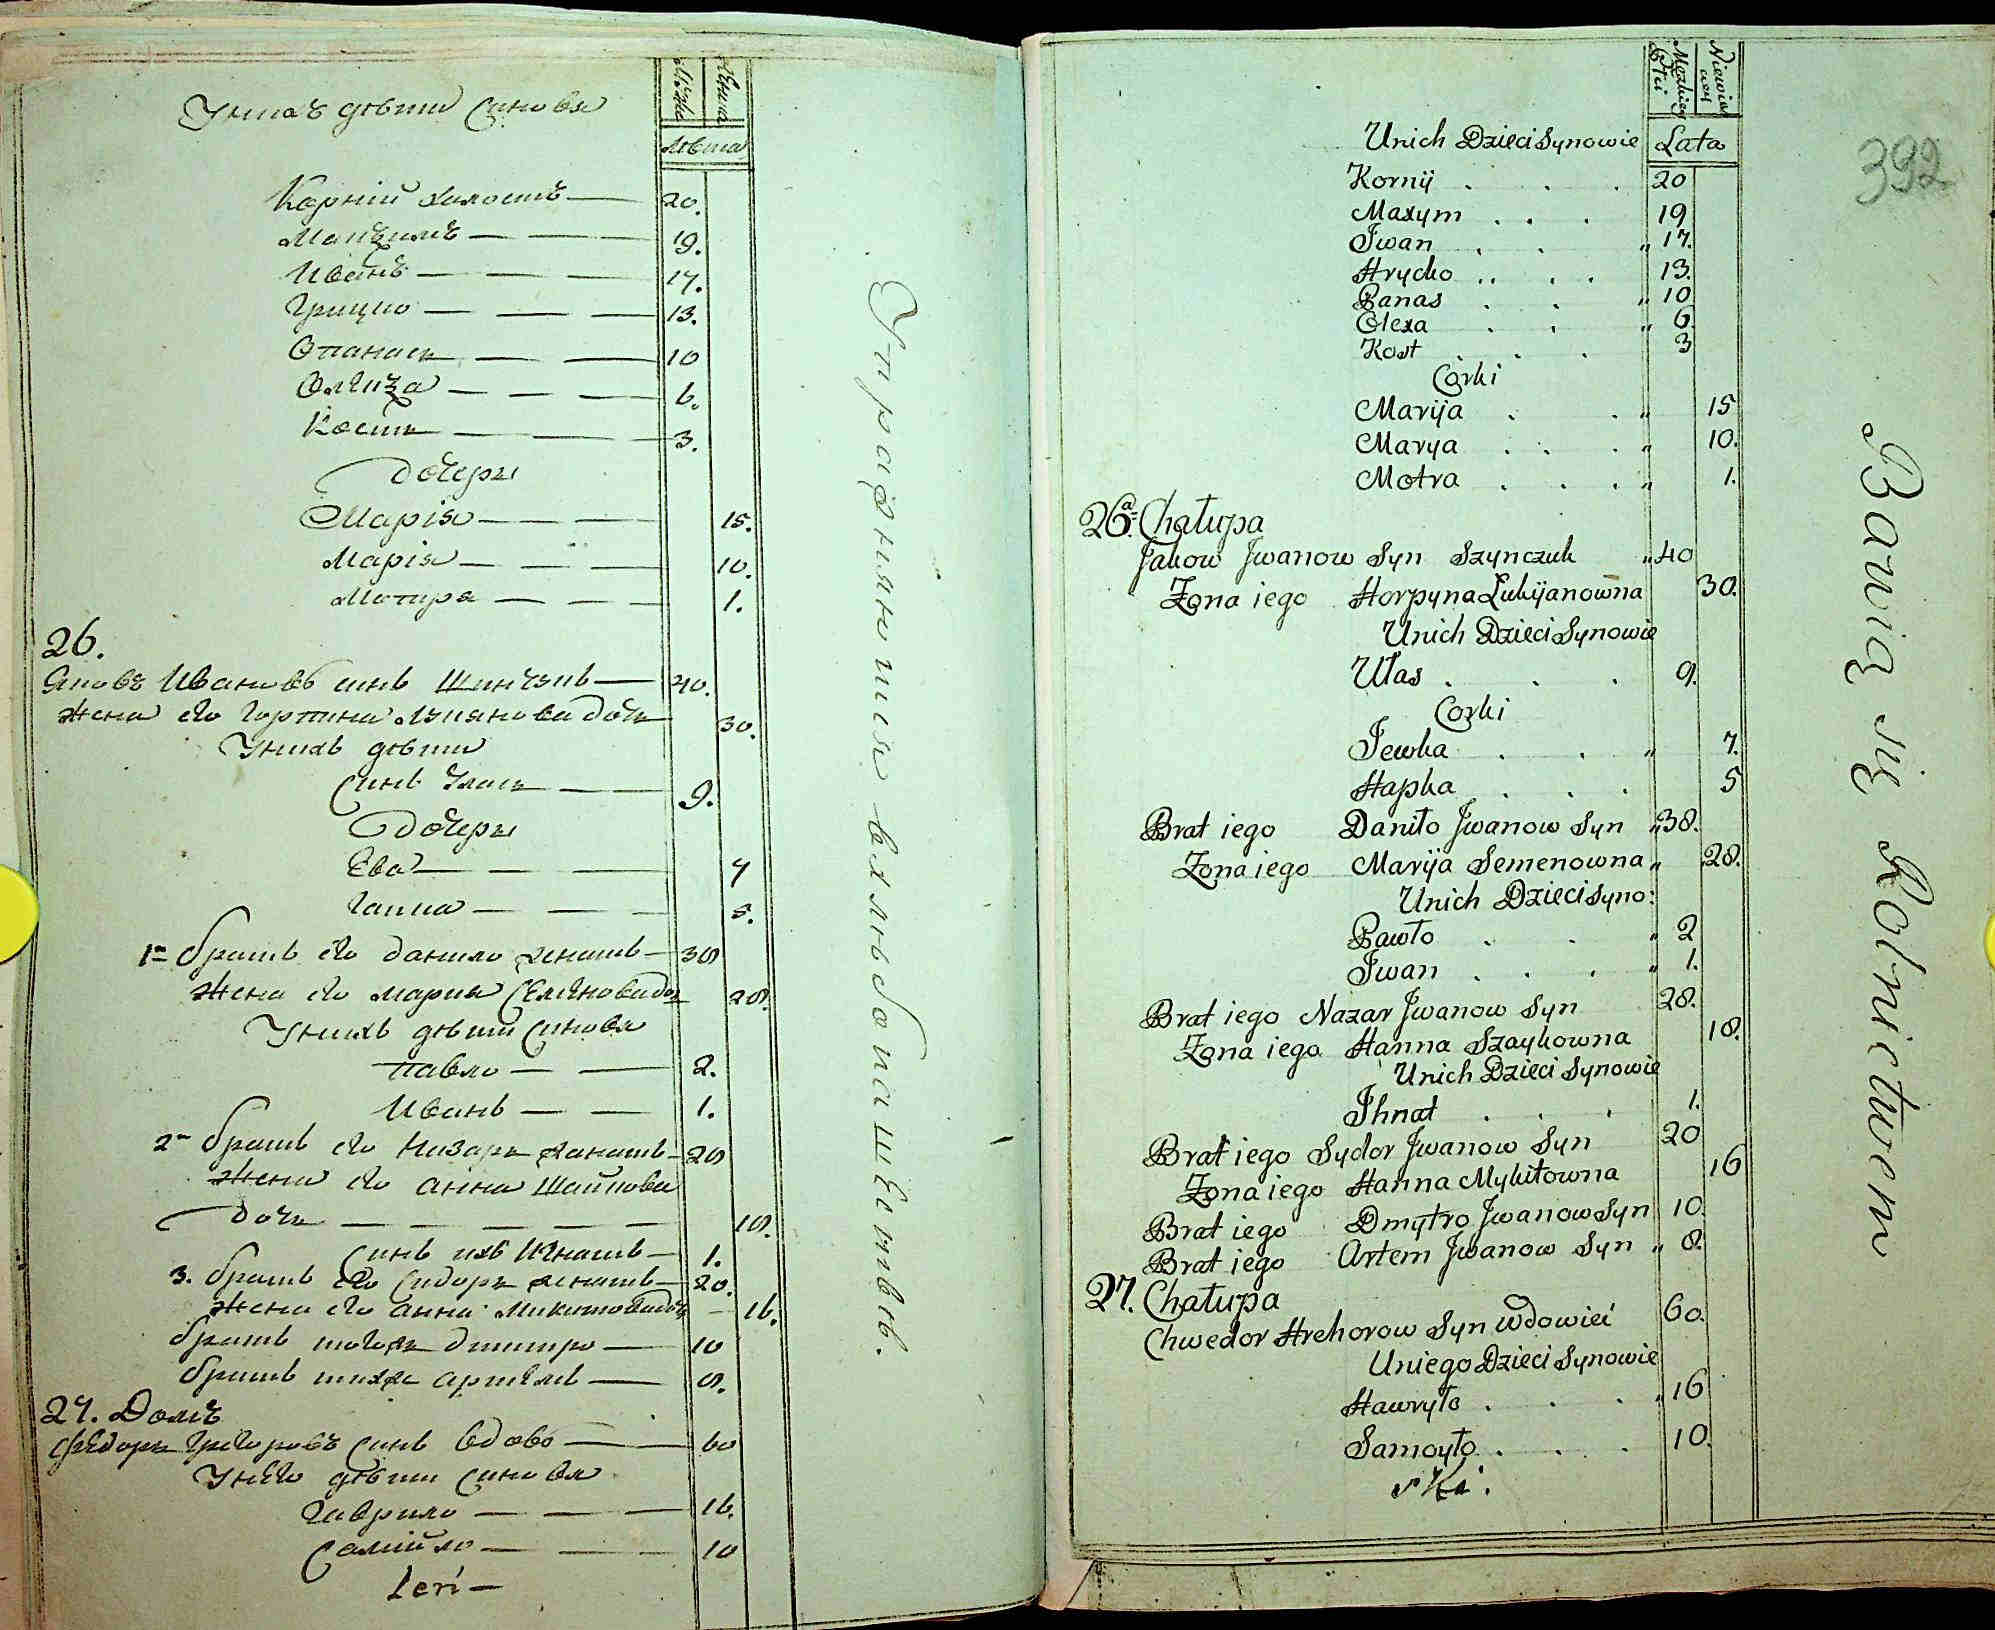 Мужеска
Женска
Унихъ дѣти Синовя
Лѣта
Корній холостъ 20.
Макъзимъ 19.
Иванъ 17.
Грицко 13.
Опанасъ 10
Олекъза 6.
Костъ 3.
Дочеры
Марія 15.
Марія 10.
Мотира 1.
26.
Яковъ Ивановъ синъ Шинчукъ 40.
Жена его Горпина Лукянова дочь 30.
Унихъ дѣти
Синъ Уласъ 9.
Дочеры
Ева 7
Гапка 5.
1 братъ его Данило женатъ 38
Жена его Мария Семенова доч 28.
Унихъ дѣти Синовя
Павло 2.
Иванъ 1.
2 братъ его Назаръ женатъ 28
Жена его Анна Шайкова
дочь 18.
Синъ ихъ Игнатъ 1.
3. братъ его Сидоръ женатъ 20.
Жена его Анна Микитова доч 16.
братъ Дмитро 10
братъ Артемъ 8.
27. Домъ
Федоръ Григоровъ Синъ вдовъ 60
Унего дѣти Синовя
Гаврило 16.
Самійло 10
Упражняются въ хлѣбопашествѣ.
Lata
Unich Dzieci Synowie
Kornij 20
Maxym 19
Jwan " 17.
Hrycko 13.
Panas " 10
Olexa " 6.
Kost 3
Corki
Marija " 15
Marya " 10.
Motra " 1.
26.a Chałupa
Jakow Jwanow Syn Szynczuk " 40
Zona iego Horpyna Łukijanowna 30.
Unich Dzieci Synowie
Ułas 9.
Corki
Jewka " 7.
Hapka 5
Brat iego Daniło Jwanow Syn " 38.
Zona iego Marija Semenowna " 28.
Unich Dzieci Syno:
Pawło " 2
Jwan " 1.
Brat iego Nazar Jwanow Syn 28.
Zona iego Hanna Szaykowna 18.
Unich Dzieci Synowie
Jhnat 1.
Brat iego Sydor Jwanow Syn 20
Zona iego Hanna Mykitowna 16
Brat iego Dmytro Jwanow Syn 10.
Brat iego Artem Jwanow Syn " 8.
27. Chałupa
Chwedor Hrehorow Syn Wdowieć 60.
Uniego Dzieci Synowie
Hawryło " 16
Samoyło 10.
Bawią się Rolnictwem
392